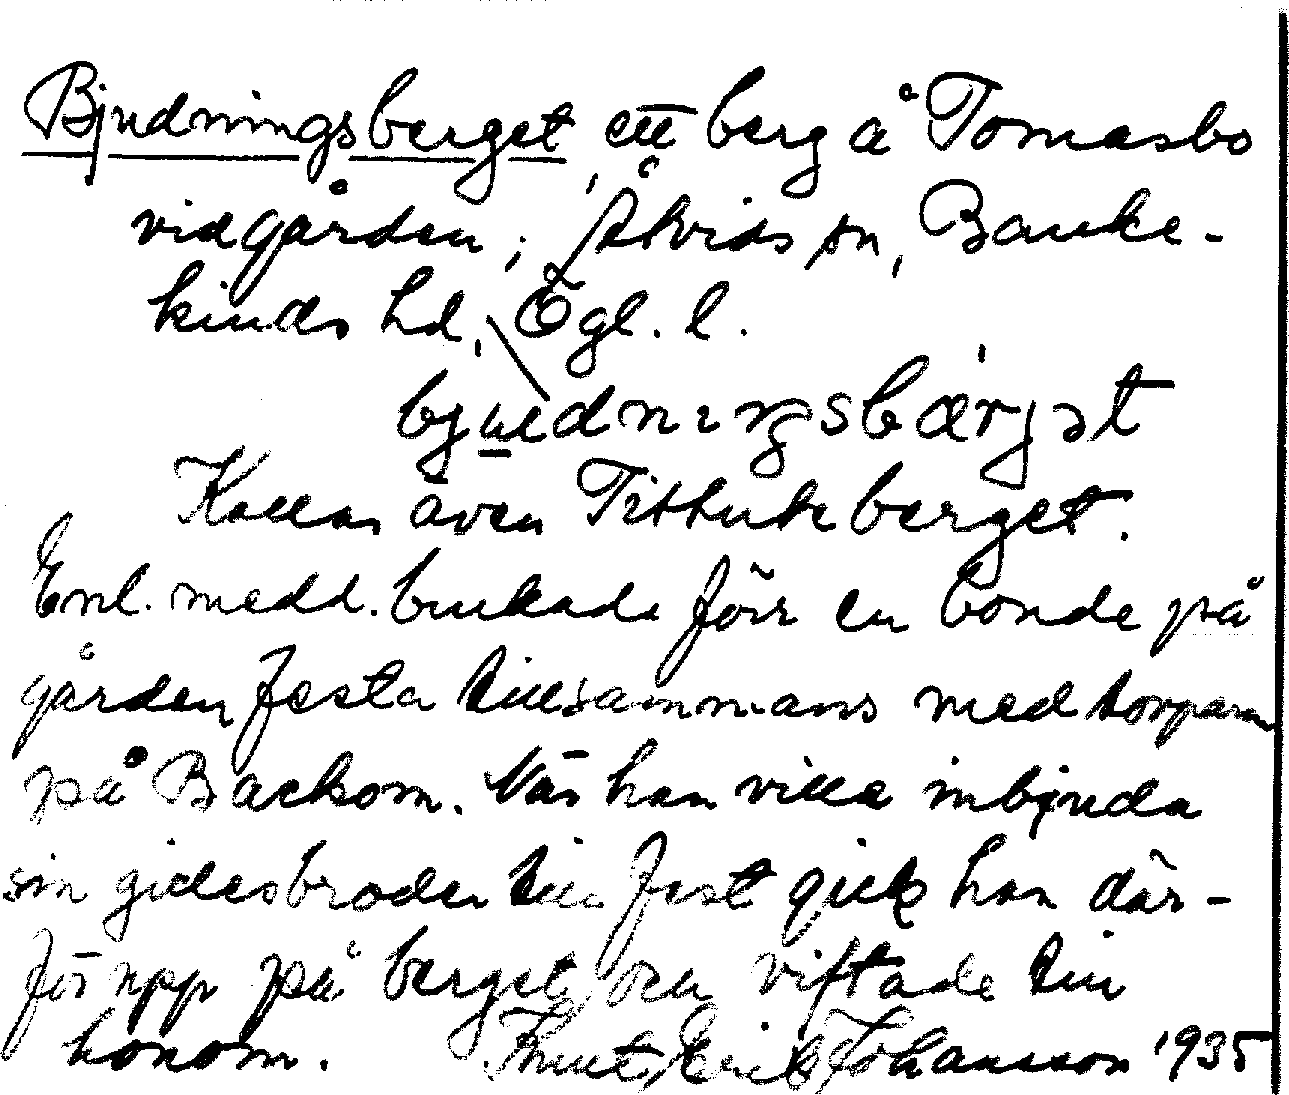 Bjudningsberget, ett berg å Tomasbo
vidgården, Åtvids sn, Banke-
kinds hd, Ögl. l.
bjuednıŋsbærjət
Kallas även Tittutberget.
Enl. medd. brukade förr en bonde på
gården festa tillsammans med torparen
på Backom. När han ville inbjuda
sin gillesbroder till fest gick han där-
för upp på berget och viftade till
honom. Knut Erik Johansson 1935